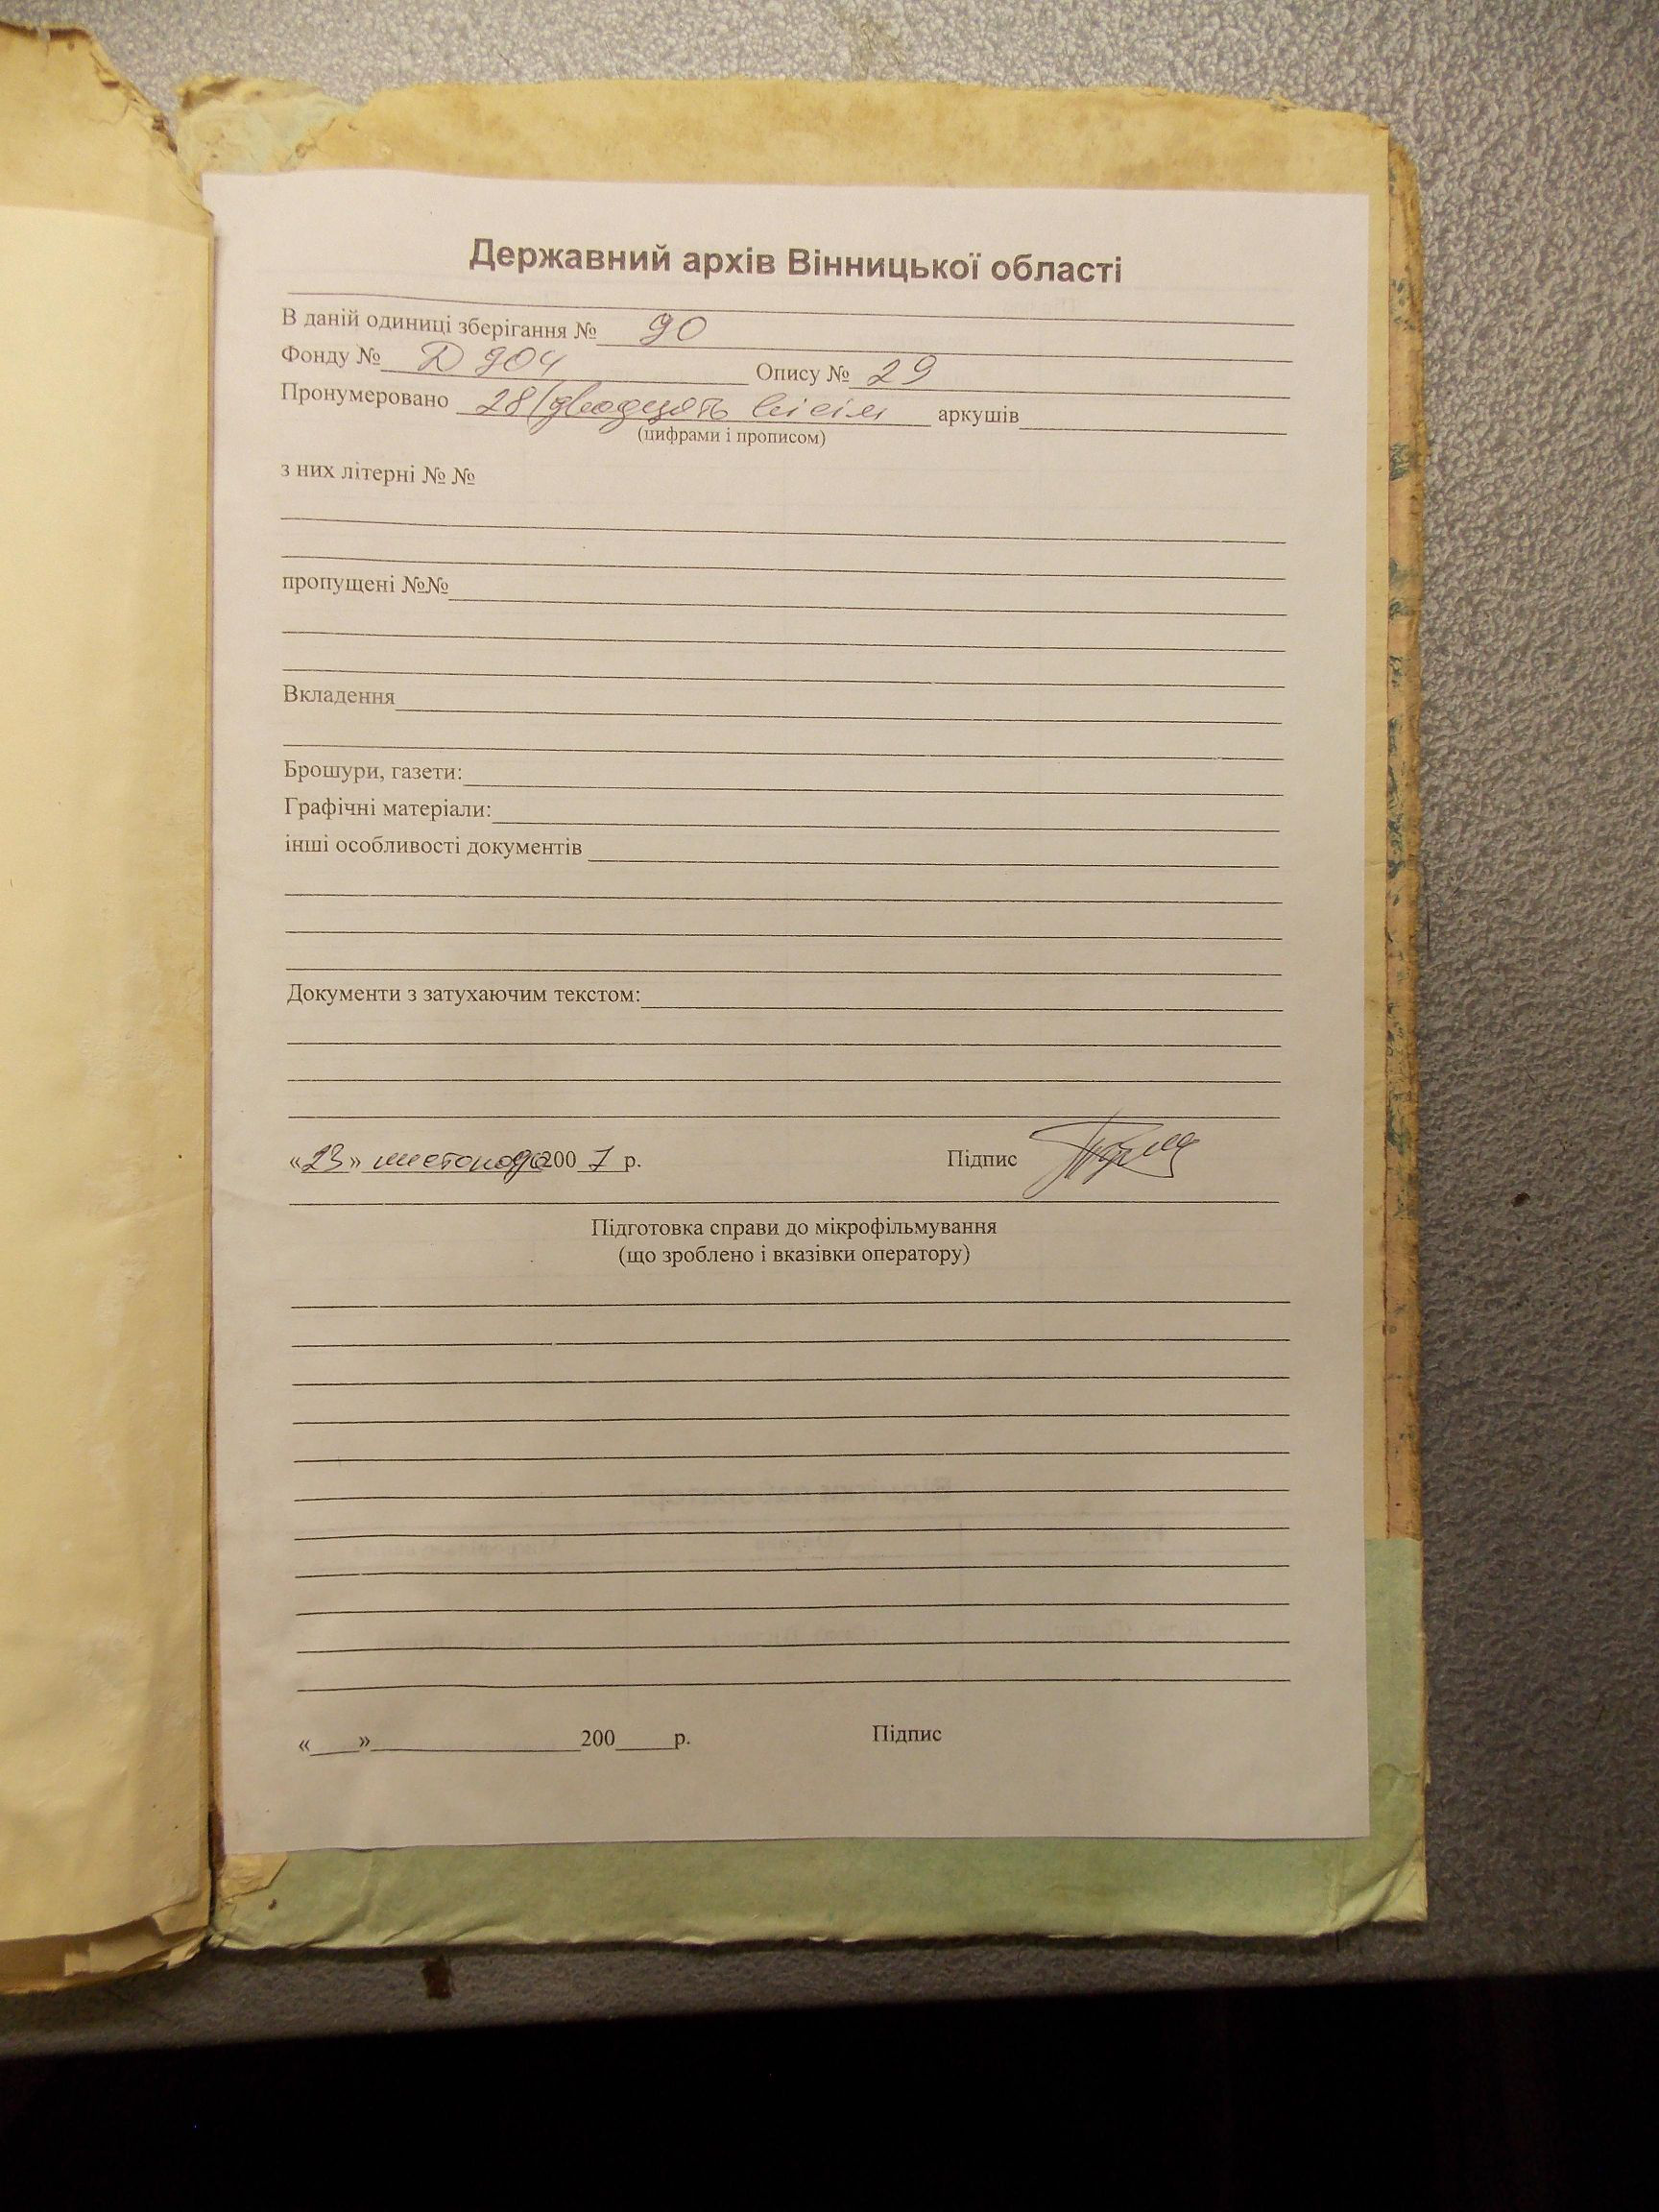 Державний архів Вінницької області
В даній одиниці зберігання № 90
Фонду № Д 904 Опису № 29
Пронумеровано 28 (двадцять вісім аркушів
(цифрами і прописом)
з них літерні № №
пропущені №№
Вкладення
Брошури, газети:
Графічні матеріали:
інші особливості документів
Документи з затухаючим текстом:
«23» листопада 2007 р. Підпис
Підготовка справи до мікрофільмування
(що зроблено і вказівки оператору)
«___»___200___р. Підпис